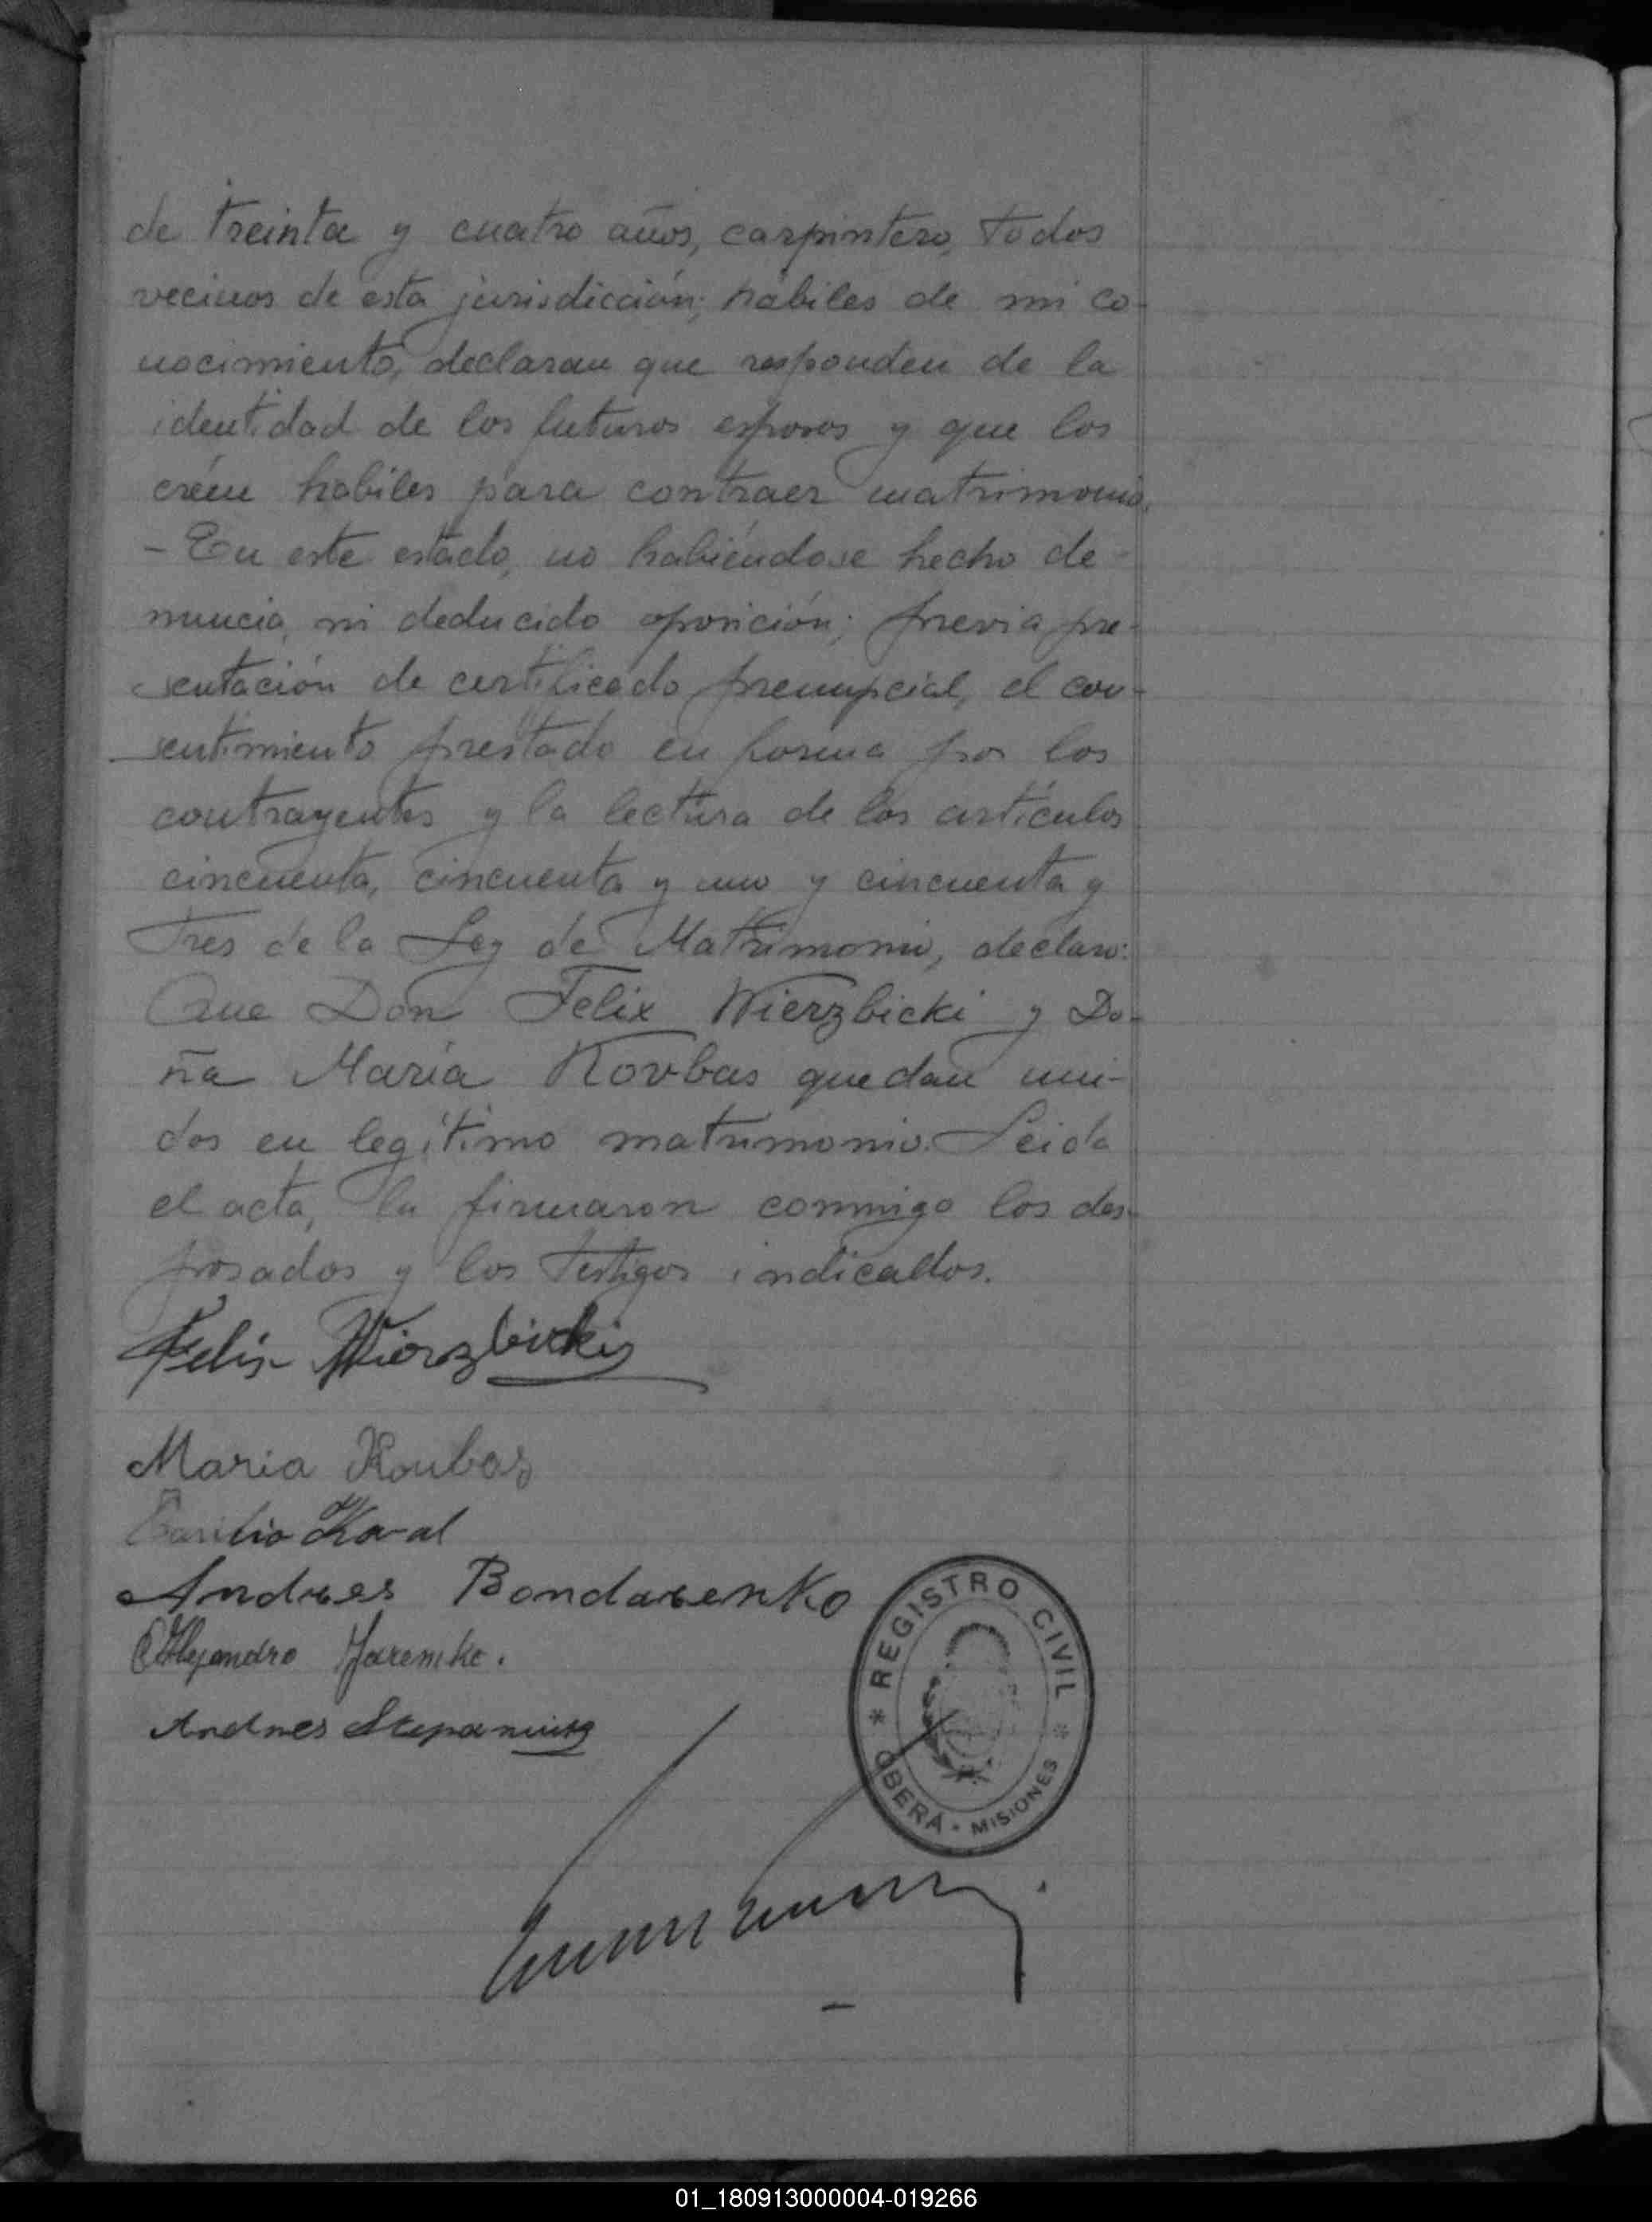 de treinta y cuatro años, carpintero, todos
vecinos de esta jurisdicción; hábiles de mi co-
nocimiento, declaran que responden de la
identidad de los futuros esposos y que los
créen habiles para contraer matrimonio.
- En este estado, no habiéndose hecho de-
nuncia, ni deducido oposición; previa pre-
sentación de certificado prenupcial, el con-
sentimiento prestado en forma por los
contrayentes y la lectura de los artículos
cincuenta, cincuenta y uno y cincuenta y
tres de la Ley de Matrimonio, declaro:
Que Don Felix Wierzbicki y Do-
ña María Kovbas quedan uni-
dos en legítimo matrimonio. Leida
el acta, la firmaron conmigo los des-
posados y los testigos indicados.
Felix Wierzbicki
Maria Koubas
Basilio
Andres Bondarenko
Alejandro Jaremko.
Andres
REGISTRO CIVIL
OBERÁ - MISIONES
01_180913000004-019266